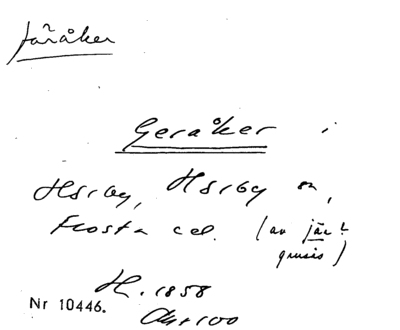 Järåker
Geråker i
Hörby, Hörby sn,
Frosta
(av jär?
grusis)
H. 1858
Nr 10446.